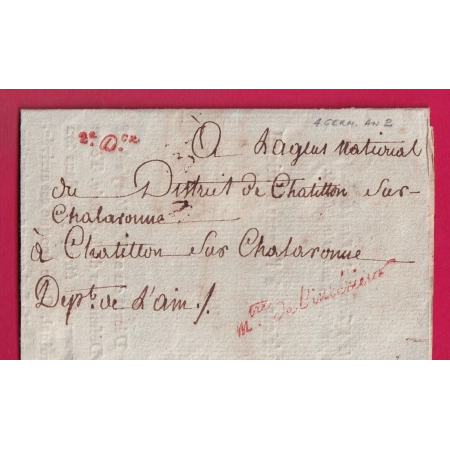 4 GERM. AN 2
2e. D.on
A L'agent National
du District de Chatillon sur
Chalaronne
à Chatillon sur Chalaronne
Dept. de L'ain /.
Mtre de l'intérieur